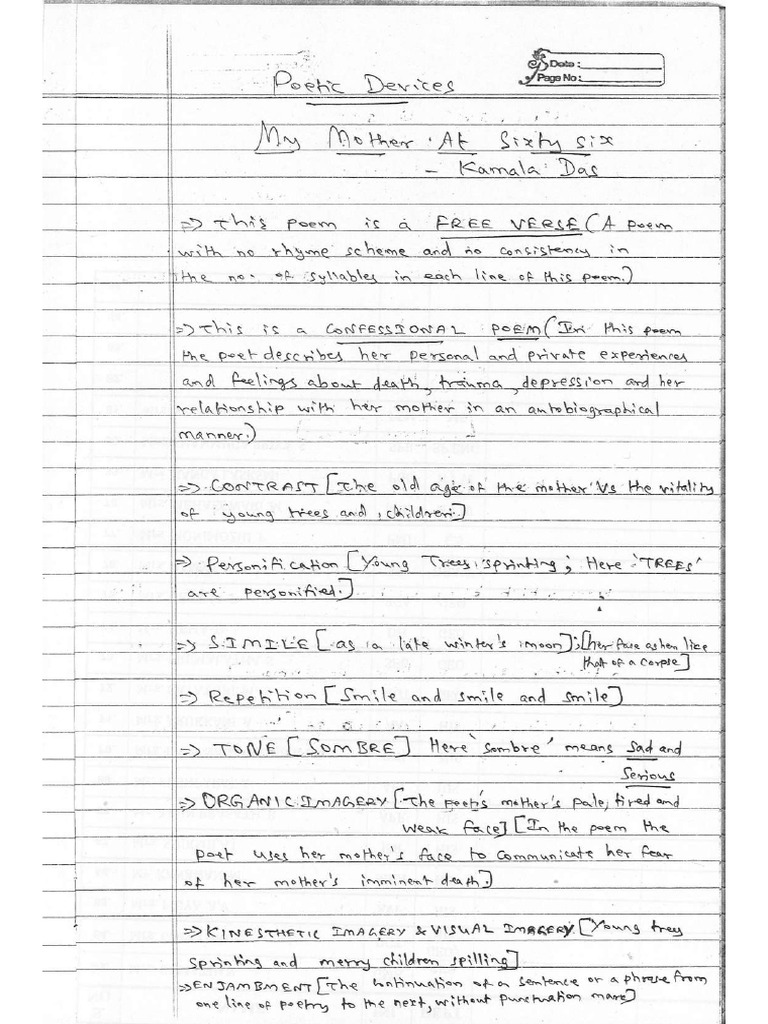 Date :
Page No :
Poetic Devices
My Mother At Sixty six
- Kamala Das
=> This poem is a FREE VERSE (A poem
with no rhyme scheme and no consistency in
the no. of syllables in each line of this poem.)
=> This is a CONFESSIONAL POEM (In this poem
the poet describes her personal and private experiences
and feelings about death, trauma, depression and her
relationship with her mother in an autobiographical
manner.)
=> CONTRAST [The old age of the mother Vs the vitality
of young trees and children.]
=> Personification [Young Trees sprinting; Here 'TREES'
are personified.]
=> SIMILE [as a late winter's moon]; [her face ashen like
that of a corpse]
=> Repetition [Smile and smile and smile]
=> TONE [SOMBRE] Here 'sombre' means Sad and
Serious
=> ORGANIC IMAGERY [The poet's mother's pale, tired and
weak face] [In the poem the
poet uses her mother's face to communicate her fear
of her mother's imminent death.]
=> KINESTHETIC IMAGERY & VISUAL IMAGERY [Young trey
sprinting and merry children spilling]
=> ENJAMBMENT [The continuation of a sentence or a phrase from
one line of poetry to the next, without punctuation mare]